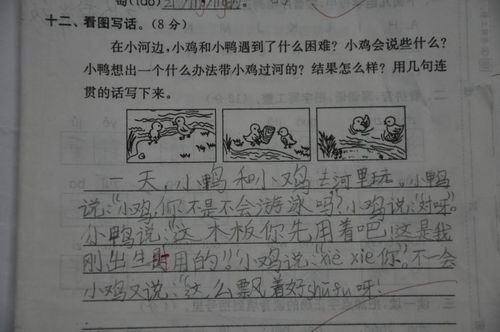 十二、看图写话。(8分)
在小河边,小鸡和小鸭遇到了什么困难?小鸡会说些什么?
小鸭想出一个什么办法带小鸡过河的?结果怎么样?用几句连
贯的话写下来。
一天,小鸭和小鸡去河里玩。小鸭
说:“小鸡,你不是不会游泳吗?小鸡说:“对呀”。
小鸭说:“这木板你先用着吧!这是我
刚出生时用的!”小鸡说:“xiè xie你”。不一会
小鸡又说:“这么飘着好shūfu呀!